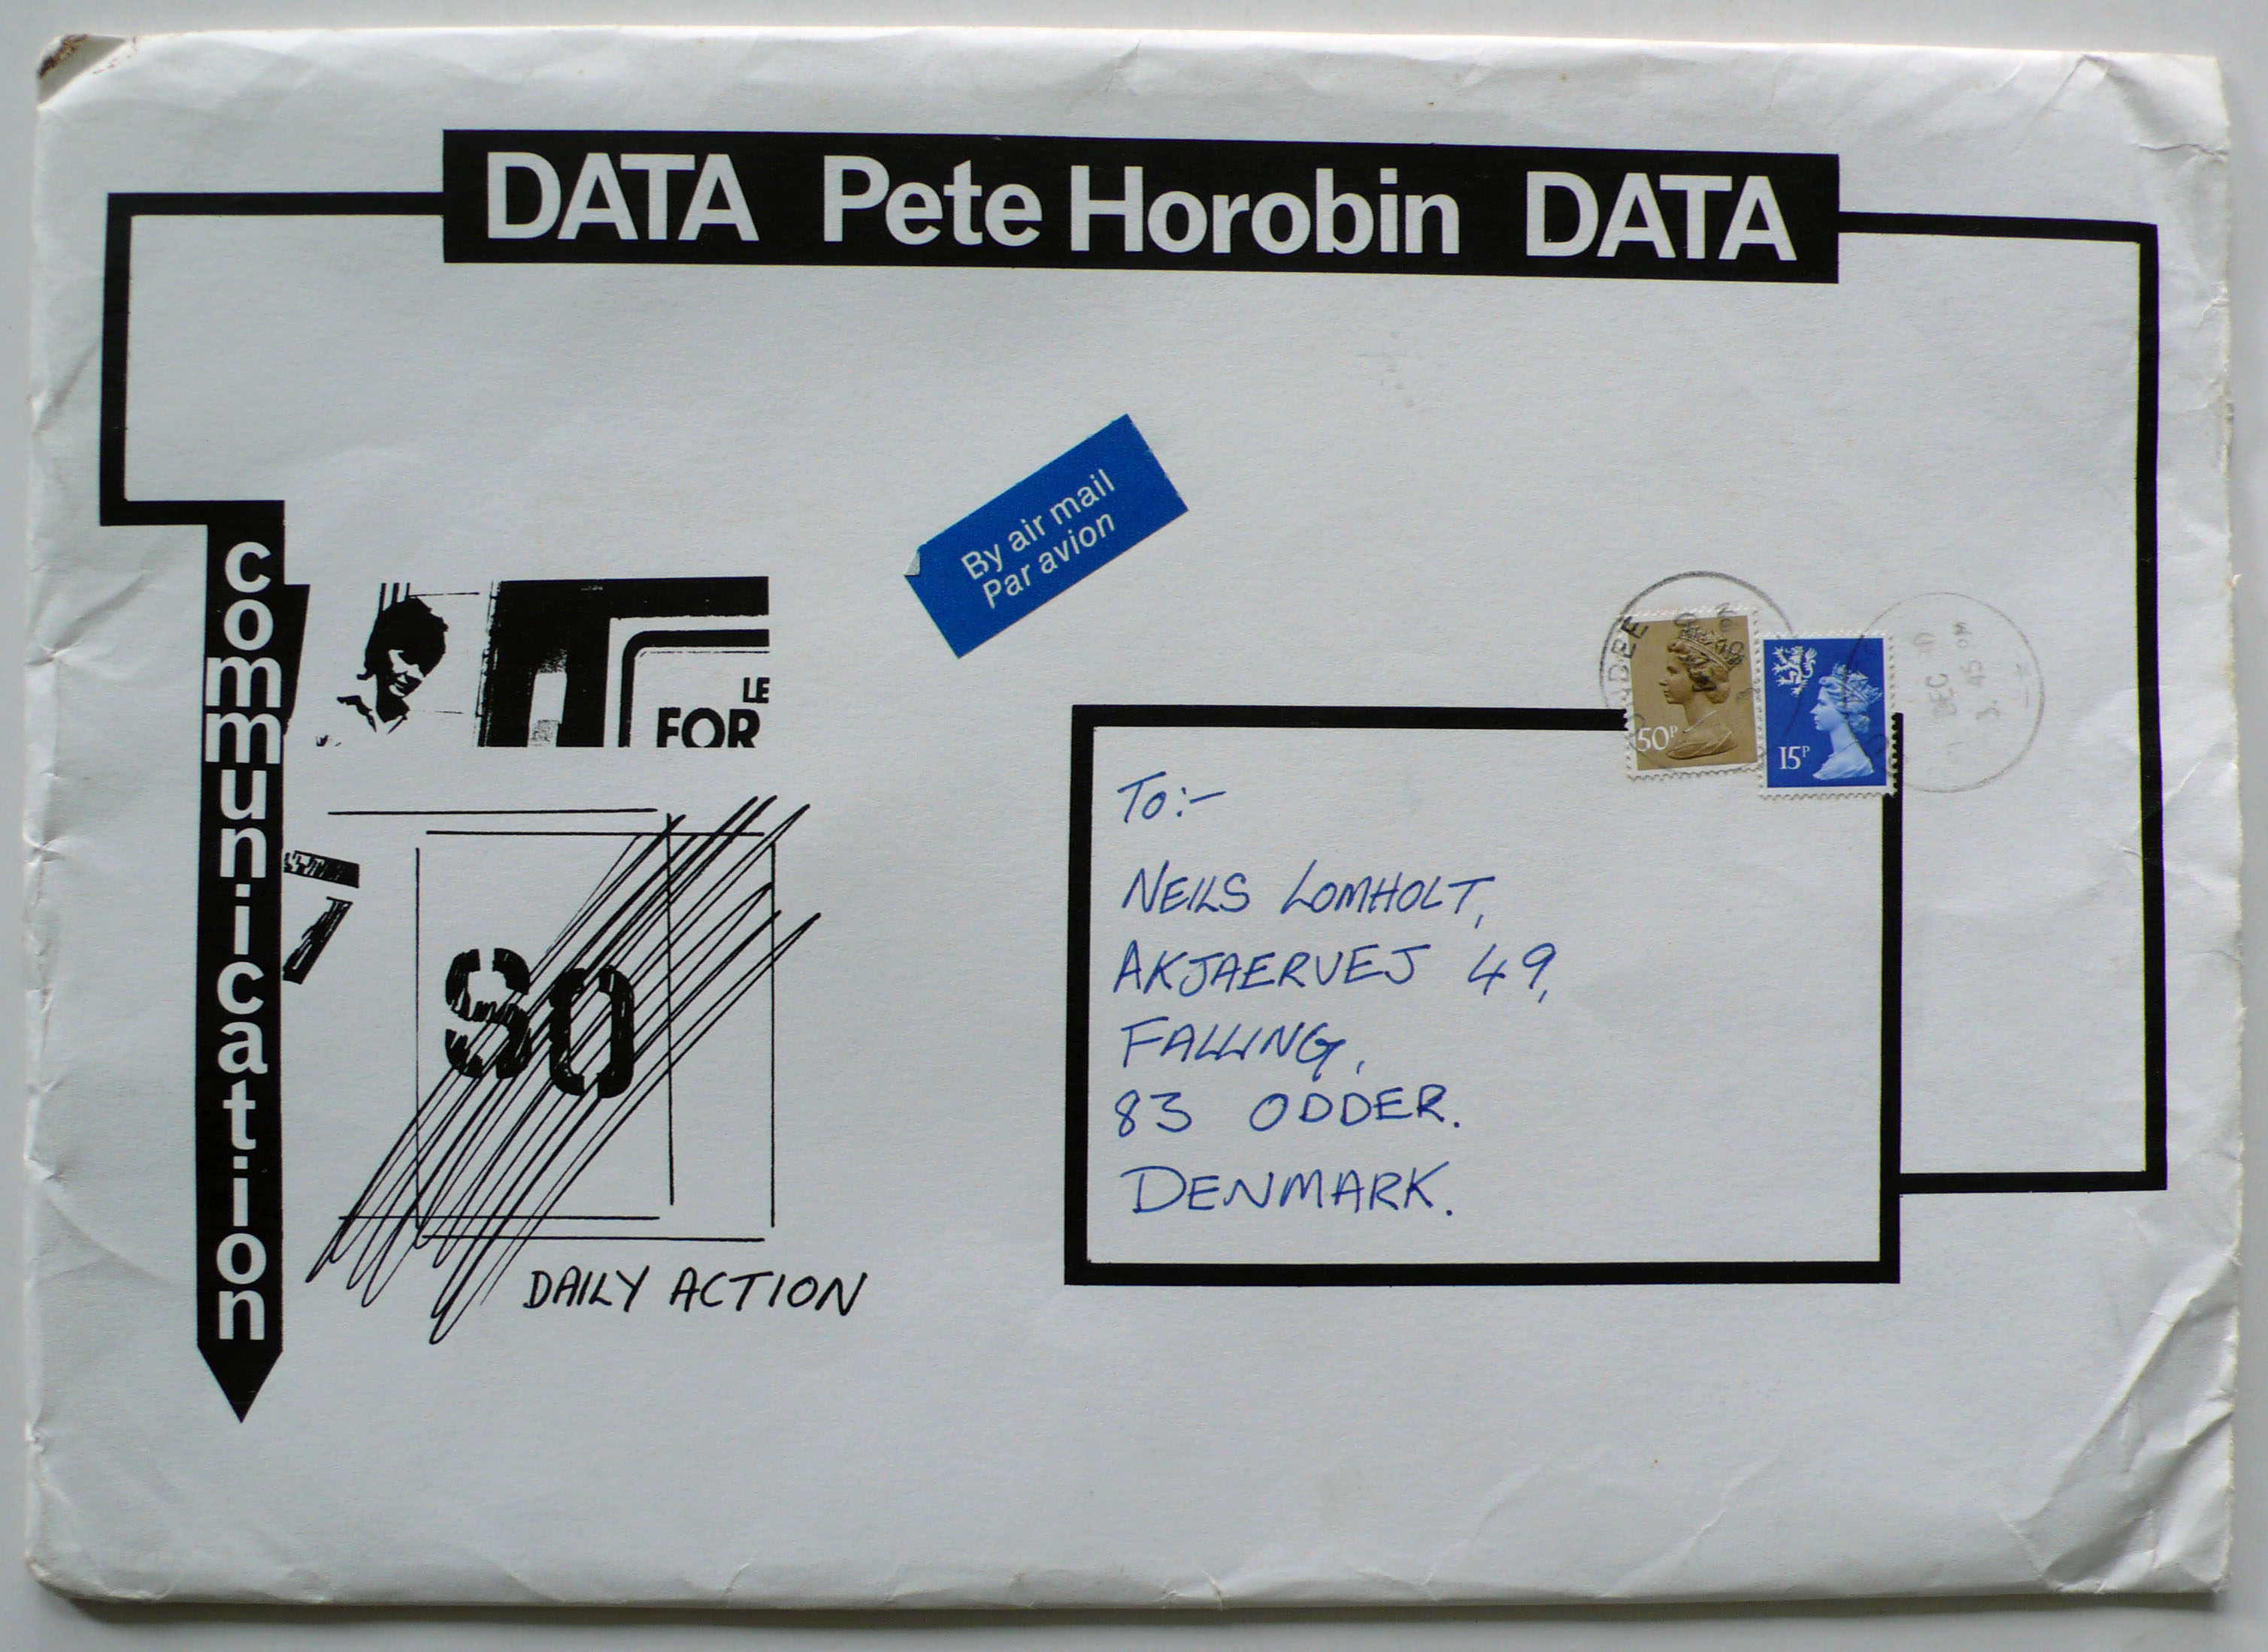 DATA Pete Horobin DATA
communication
LE
FOR
By air mail
Par avion
50P
15P
DEC
3.45 PM
To:-
NEILS LOMHOLT,
AKJAERVEJ 49,
FALLING,
83 ODDER.
DENMARK.
SO
DAILY ACTION